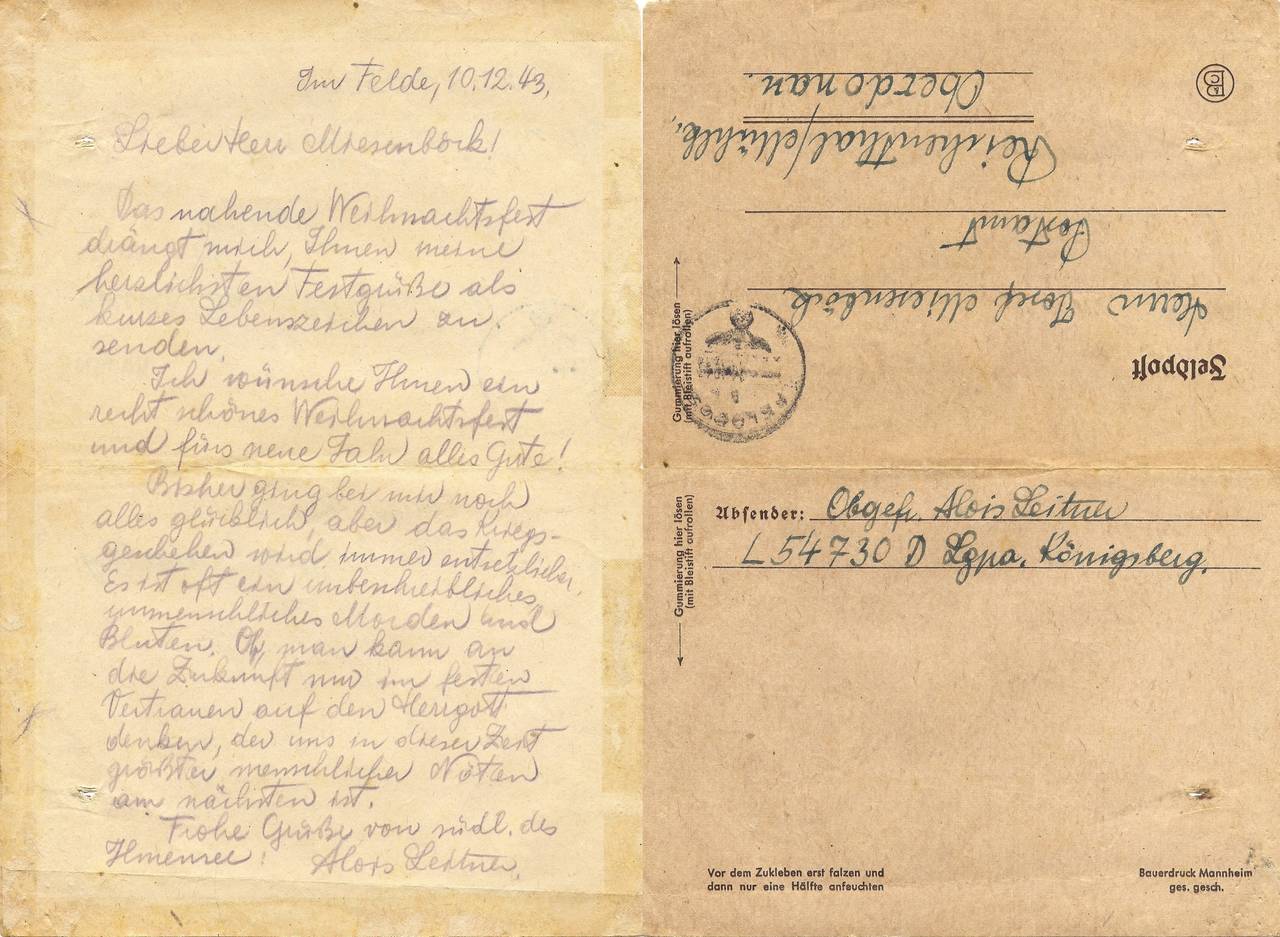 Im Felde, 10.12.43,
Lieber Herr Miesenböck!
Das nahende Weihnachtsfest
drängt mich, Ihnen meine
herzlichsten Festgrüße als
kurzes Lebenszeichen zu
senden.
Ich wünsche Ihnen ein
recht schönes Weihnachtsfest
und fürs neue Jahr alles Gute!
Bisher ging bei mir noch
alles glücklich, aber das Kriegs-
geschehen wird immer entsetzlicher.
Es ist oft ein unbeschreibliches,
unmenschliches Morden und
Bluten. Oh, man kann an
die Zukunft nur im festen
Vertrauen auf den Herrgott
denken, der uns in dieser Zeit
größter menschlicher Nöten
am nächsten ist.
Frohe Grüße von südl. des
Ilmensee! Alois Leitner.
Feldpost
Herrn Josef Miesenböck
Postamt
Reichenthal/Mühlk.,
Oberdonau.
FELDPOST
Gummierung hier lösen
(mit Bleistift aufrollen)
Gummierung hier lösen
(mit Bleistift aufrollen)
Absender: Obgefr. Alois Leitner
L 54730 D Lgpa. Königsberg.
Vor dem Zukleben erst falzen und
dann nur eine Hälfte anfeuchten
Bauerdruck Mannheim
ges. gesch.